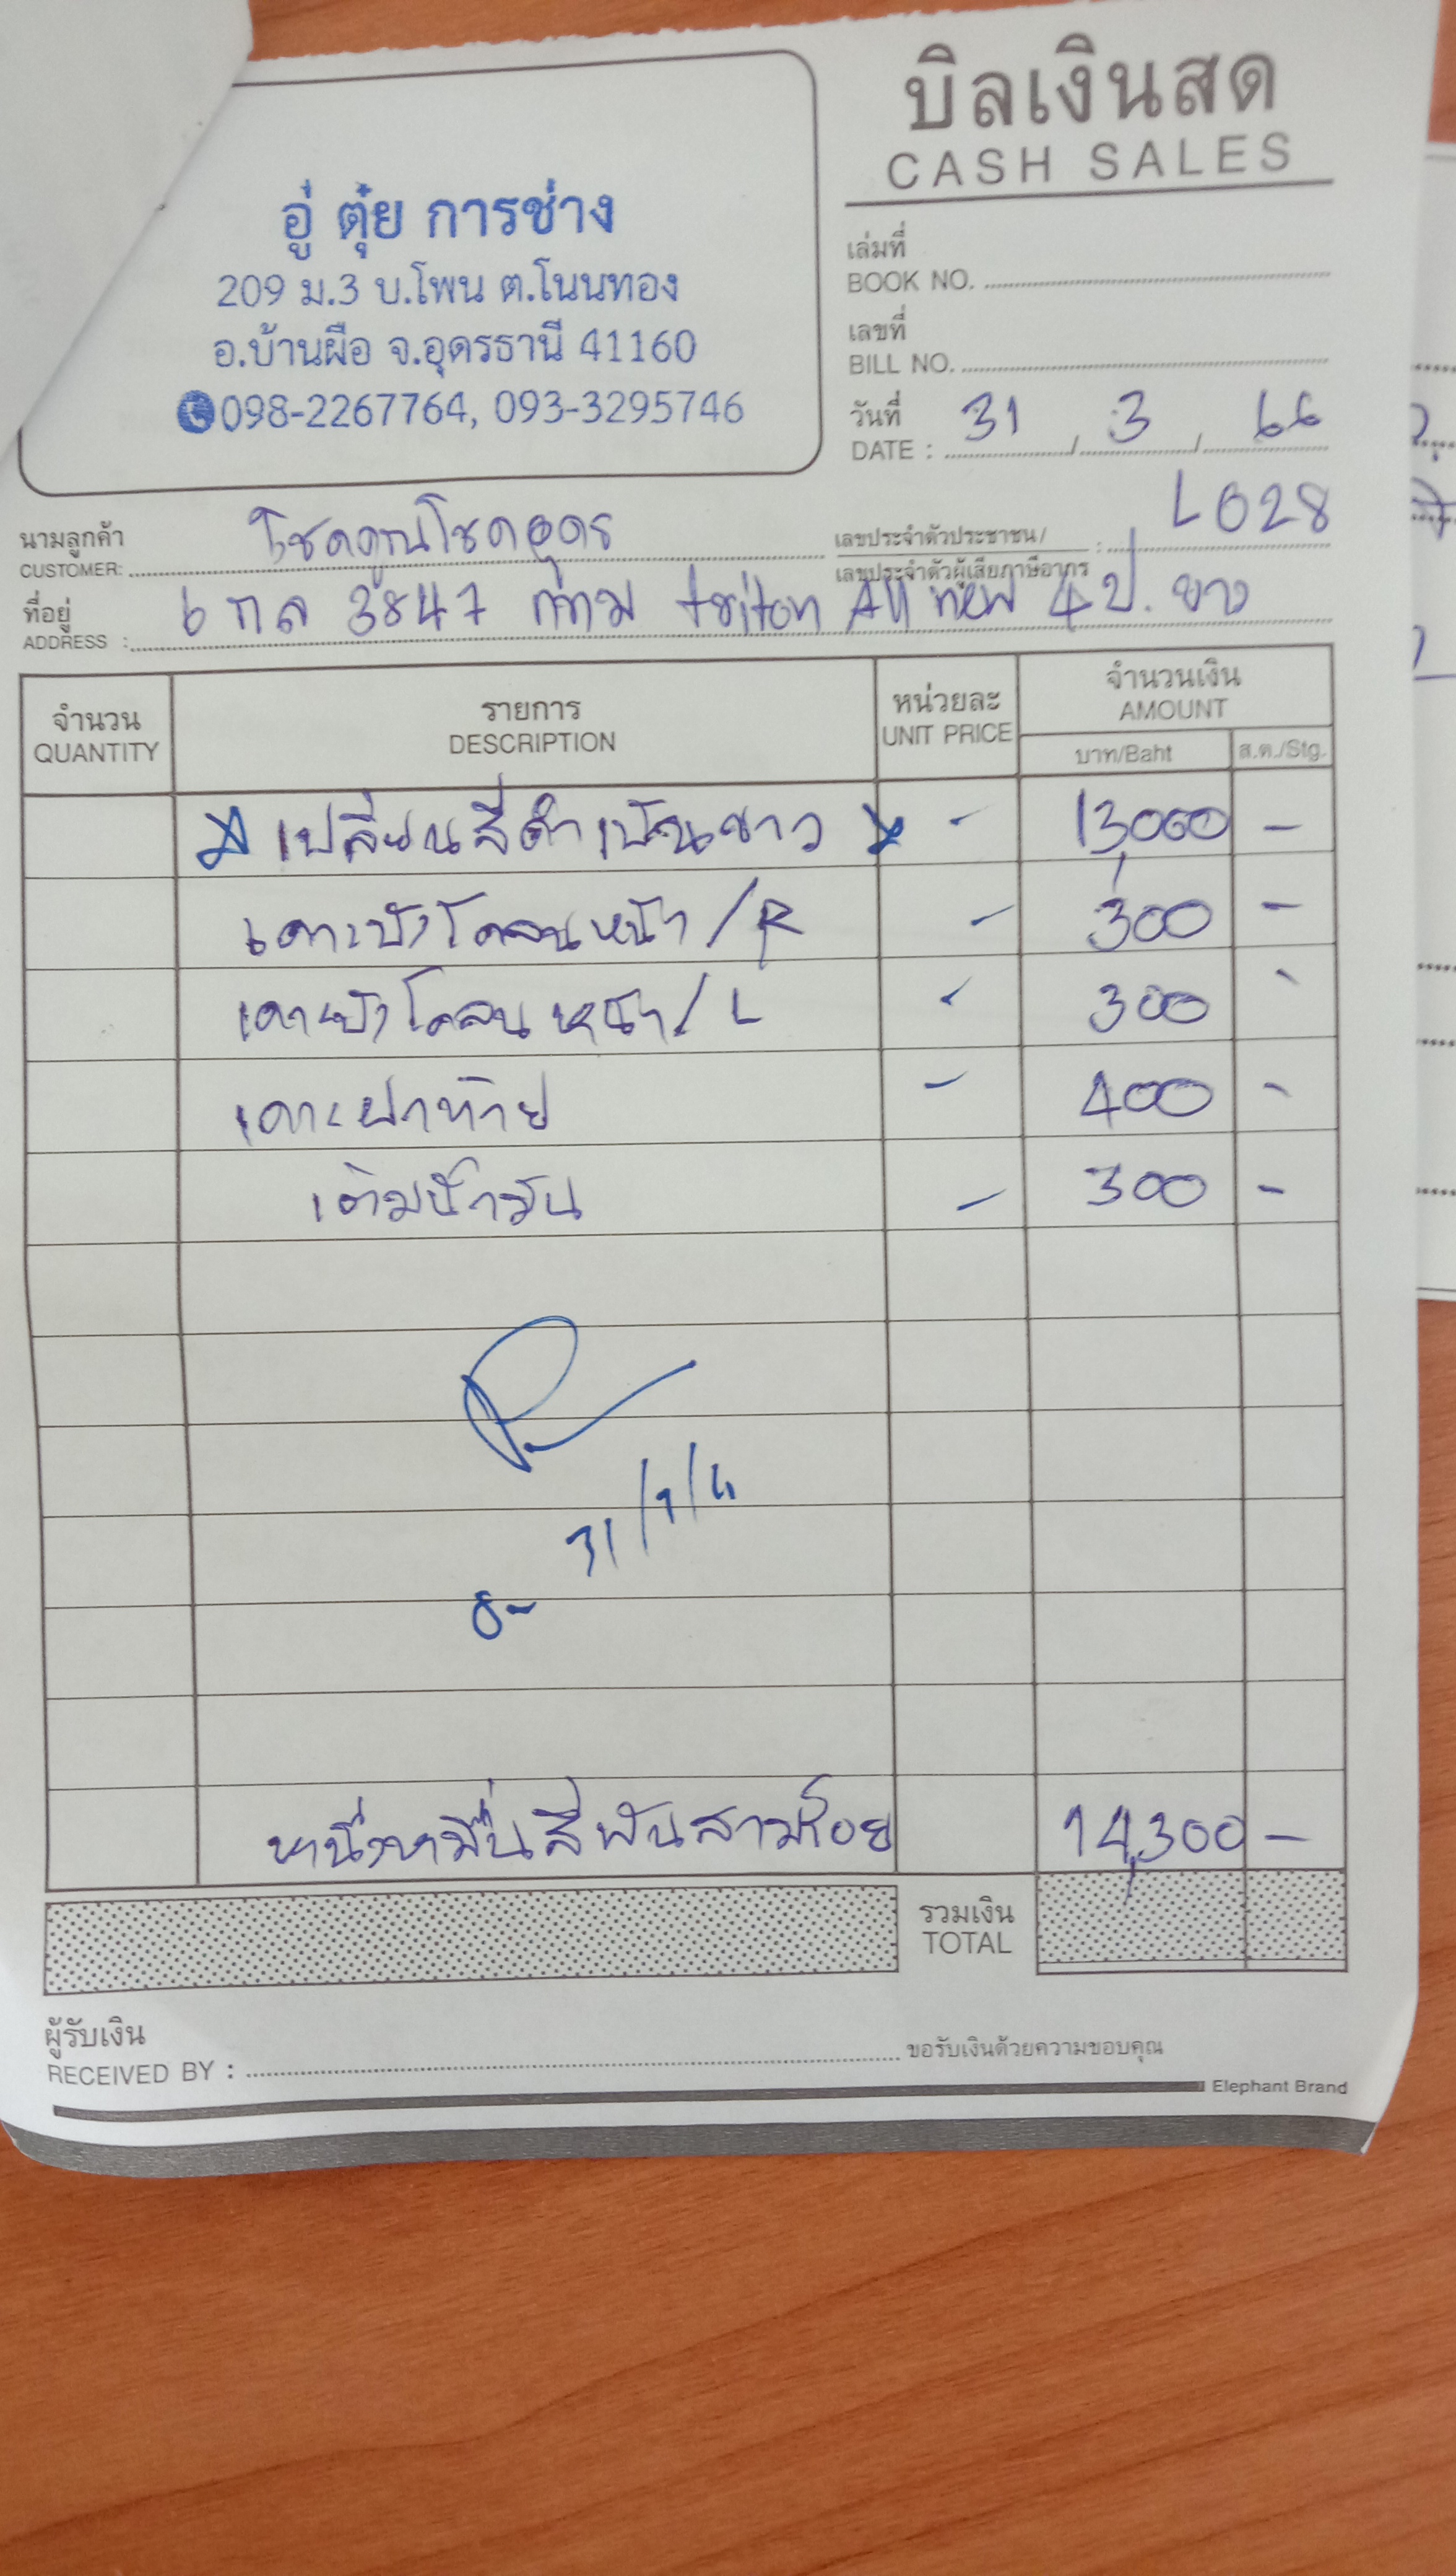 บิลเงินสด
CASH SALES
อู่ ตุ๋ย การช่าง
209 ม.3 บ.โพน ต.โนนทอง
อ.บ้านผือ จ.อุดรธานี 41160
098-2267764, 093-3295746
เล่มที่
BOOK NO.
เลขที่
BILL NO.
วันที่
DATE : 31 / 3 / 66
นามลูกค้า
CUSTOMER: โชคคูณโชคอุดร
เลขประจำตัวประชาชน/
เลขประจำตัวผู้เสียภาษีอากร : L028
ที่อยู่
ADDRESS : 6 กล 3847 กทม triton All new 4 ป. ยาง
จำนวน
QUANTITY
รายการ
DESCRIPTION
หน่วยละ
UNIT PRICE
จำนวนเงิน
AMOUNT
บาท/Baht ส.ต./Stg.
เปลี่ยนสีดำเป็นขาว - 13,000 -
เคาะบังโคลนหน้า/R - 300 -
เคาะบังโคลนหน้า/L - 300 -
เคาะฝาท้าย - 400 -
เติมน้ำมัน - 300 -
หนึ่งหมื่นสี่พันสามร้อย 14,300 -
รวมเงิน
TOTAL
ผู้รับเงิน
RECEIVED BY :
ขอรับเงินด้วยความขอบคุณ
Elephant Brand